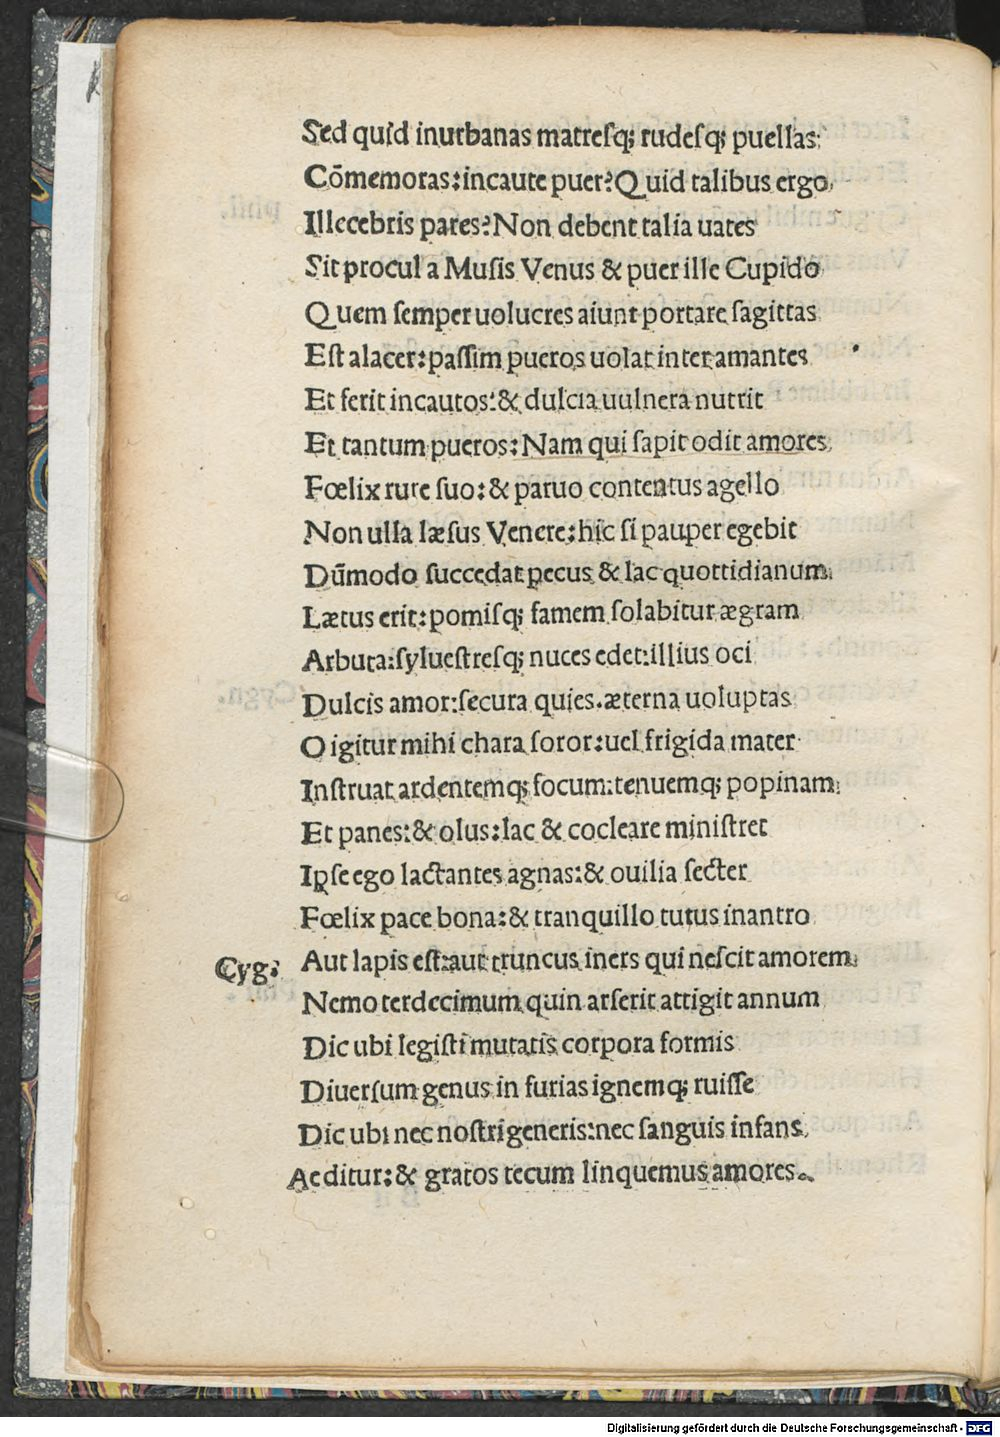 Sed quid inurbanas matresq; rudesq; puellas:
Cōmemoras: incaute puer? Quid talibus ergo,
Illecebris pares? Non debent talia uates
Sit procul a Musis Venus & puer ille Cupido
Quem semper uolucres aiunt portare sagittas
Est alacer: passim pueros uolat inter amantes
Et ferit incautos: & dulcia uulnera nutrit
Et tantum pueros: Nam qui sapit odit amores,
Fœlix rure suo: & paruo contentus agello
Non ulla læsus Venere: hic si pauper egebit
Dūmodo succedat pecus & lac quottidianum.
Lætus erit: pomisq; famem solabitur ægram
Arbuta: syluestresq; nuces edet: illius oci
Dulcis amor: secura quies. æterna uoluptas
O igitur mihi chara soror: uel frigida mater
Instruat ardentemq; focum: tenuemq; popinam:
Et panes: & olus: lac & cocleare ministret
Ipse ego lactantes agnas: & ouilia secter
Fœlix pace bona: & tranquillo tutus in antro
Cyg: Aut lapis est: aut truncus iners qui nescit amorem.
Nemo terdecimum quin arserit attigit annum
Dic ubi legisti mutatis corpora formis
Diuersum genus in furias ignemq; ruisse
Dic ubi nec nostri generis: nec sanguis infans,
Aeditur: & gratos tecum linquemus amores.
Digitalisierung gefördert durch die Deutsche Forschungsgemeinschaft - DFG